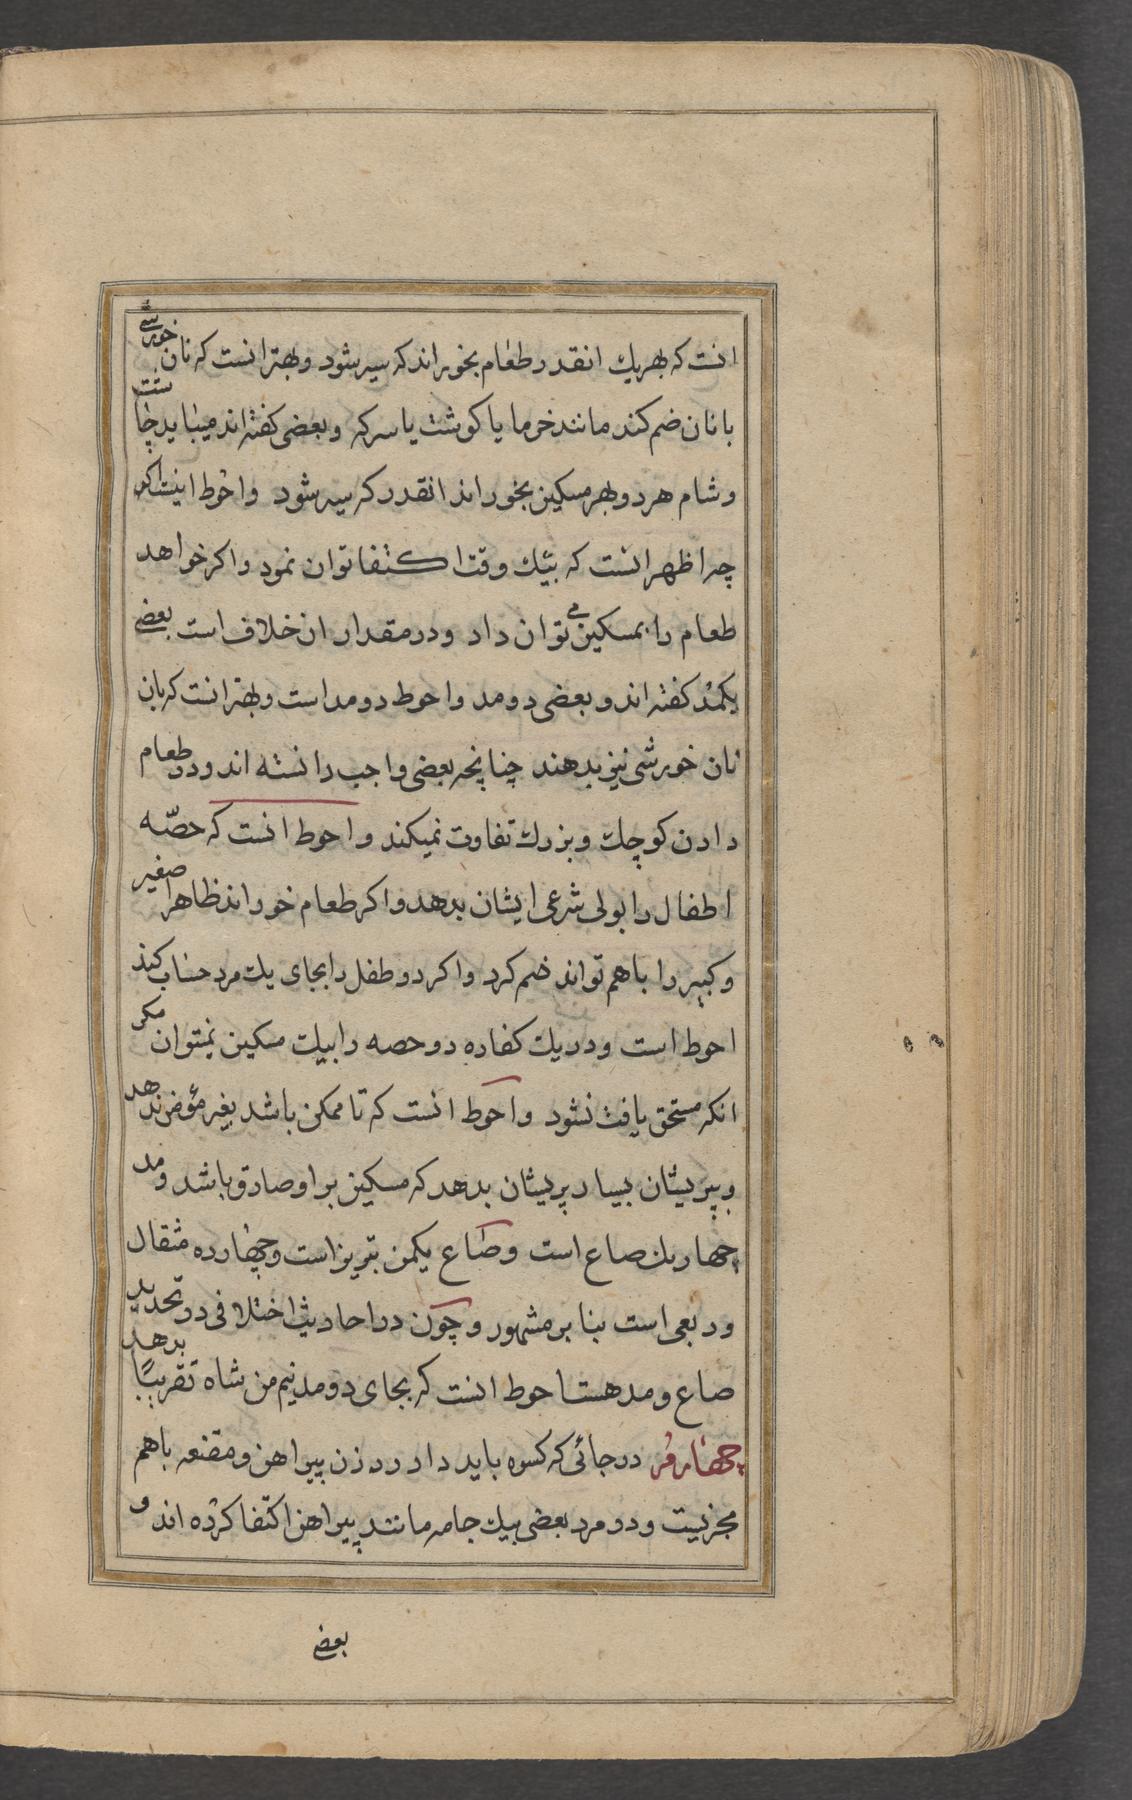 انست که بهریك انقدر طعام بخوراند که سیر شود و بهتر انست که نان خورشی
با نان ضم کند مانند خرما یا کوشت یا سرکه و بعضی کفته اند میباید چاشت
و شام هر دو بهر مسکین بخوراند انقدر که سیر شود و احوط اینست اکر
چه اظهر انست که بیك وقت اکتفا توان نمود و اکر خواهد
طعام را بمسکین می توان داد و در مقدار ان خلاف است بعضی
یکمد کفته اند و بعضی دو مد و احوط دو مد است و بهتر انست که بان
نان خورشی نیز بدهند چنانچه بعضی واجب دانسته اند و در طعام
دادن کوچك و بزرك تفاوت نمیکند و احوط انست که حصّه
اطفال را بولی شرعی ایشان بدهد و اکر طعام خوراند ظاهرا صغیر
و کبیر را با هم تواند ضم کرد و اکر دو طفل را بجای یك مرد حساب کند
احوط است و در یك کفاره دو حصه را بیك مسکین نمیتوان مکر
انکه مستحق یافت نشود و احوط انست که تا ممکن باشد بغیر مؤمن ندهد
و بپریشان بسیار پریشان بدهد که مسکین بر او صادق باشد و مد
چهار یك صاع است و صاع یکمن تبریز است و چهارده مثقال
و ربعی است بنا بر مشهور و چون در احادیث اختلافی در تحدید
صاع و مد هست احوط انست که بجای دو مد نیم من شاه تقریبًا بدهد
چهارم در جائی که کسوه باید داد در زن پیراهن و مقنعه با هم
مجزیست و در مرد بعضی بیك جامه مانند پیراهن اکتفا کرده اند و
بعضی